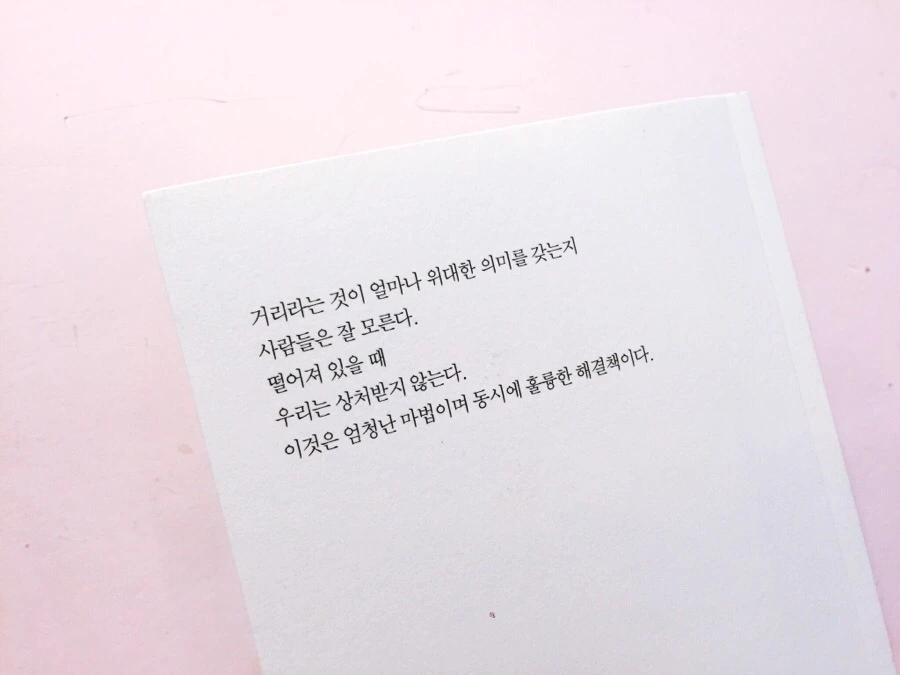 거리라는 것이 얼마나 위대한 의미를 갖는지
사람들은 잘 모른다.
떨어져 있을 때
우리는 상처받지 않는다.
이것은 엄청난 마법이며 동시에 훌륭한 해결책이다.